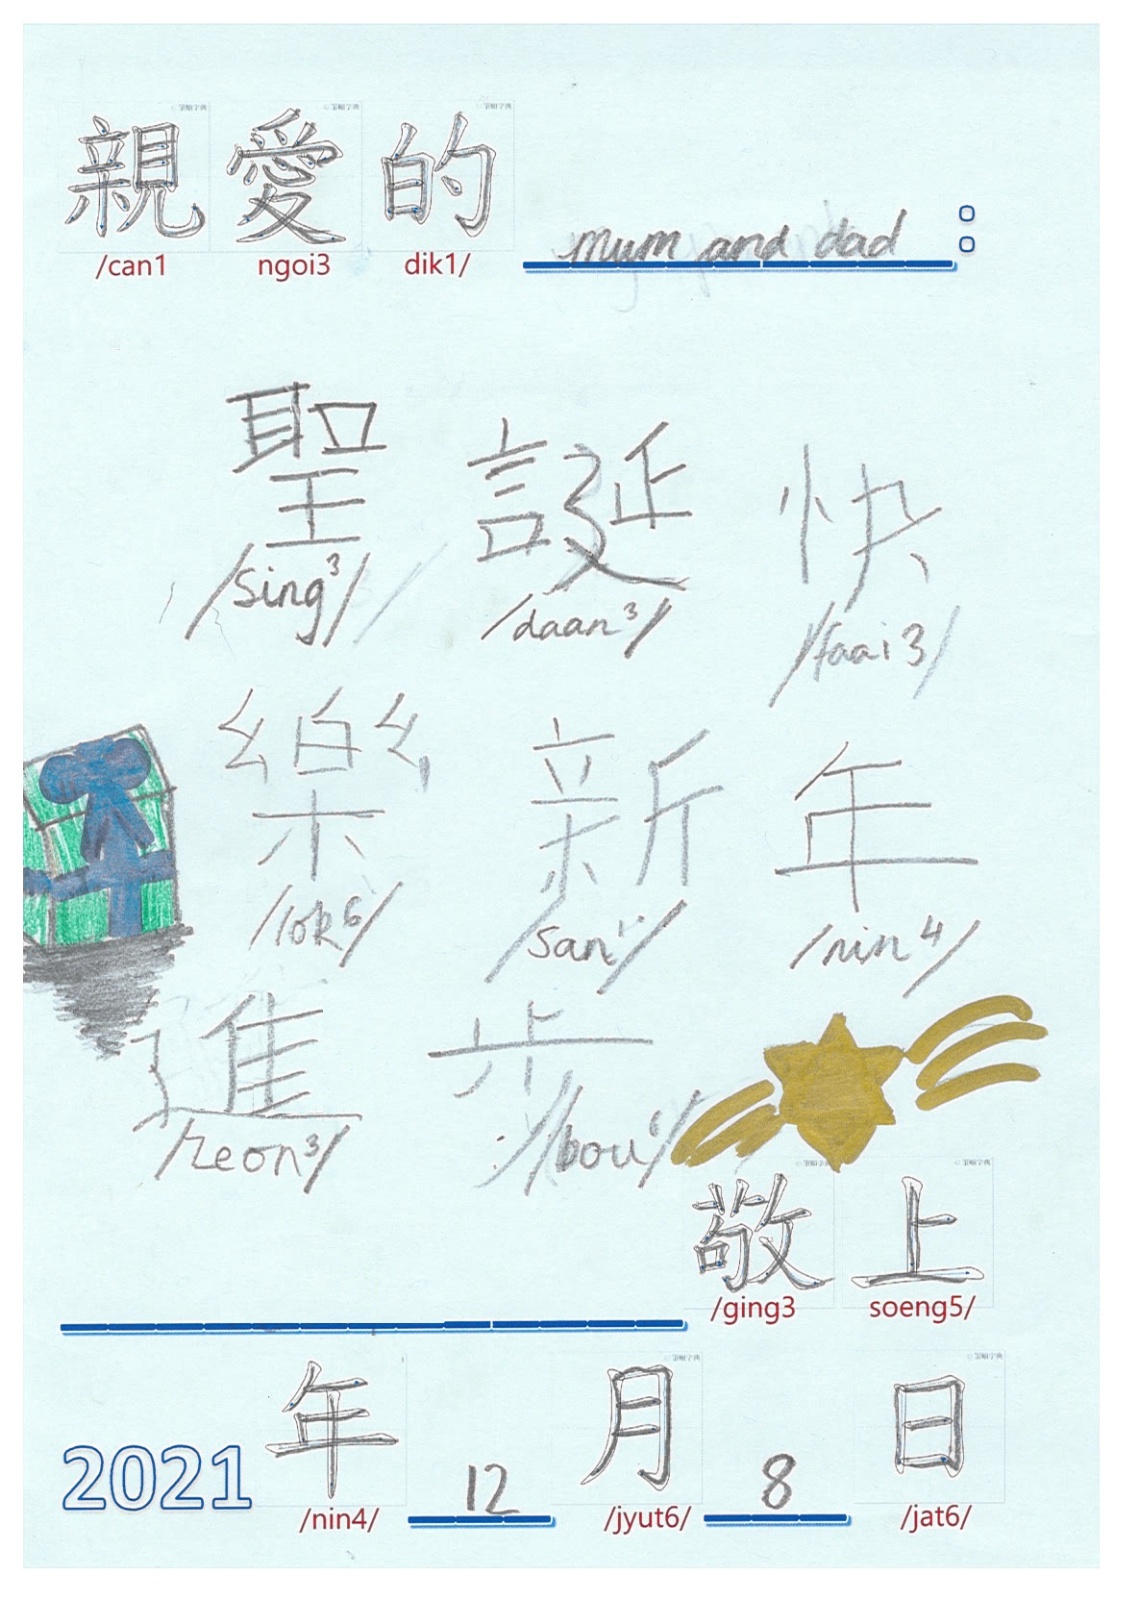 親愛的 mum and dad :
/can1 ngoi3 dik1/
聖誕快
/sing3/ /daan3/ /faai3/
樂新年
/lok6/ /san1/ /nin4/
進步
/zeon3/ /bou6/
敬上
/ging3 soeng5/
2021年12月8日
/nin4/ /jyut6/ /jat6/